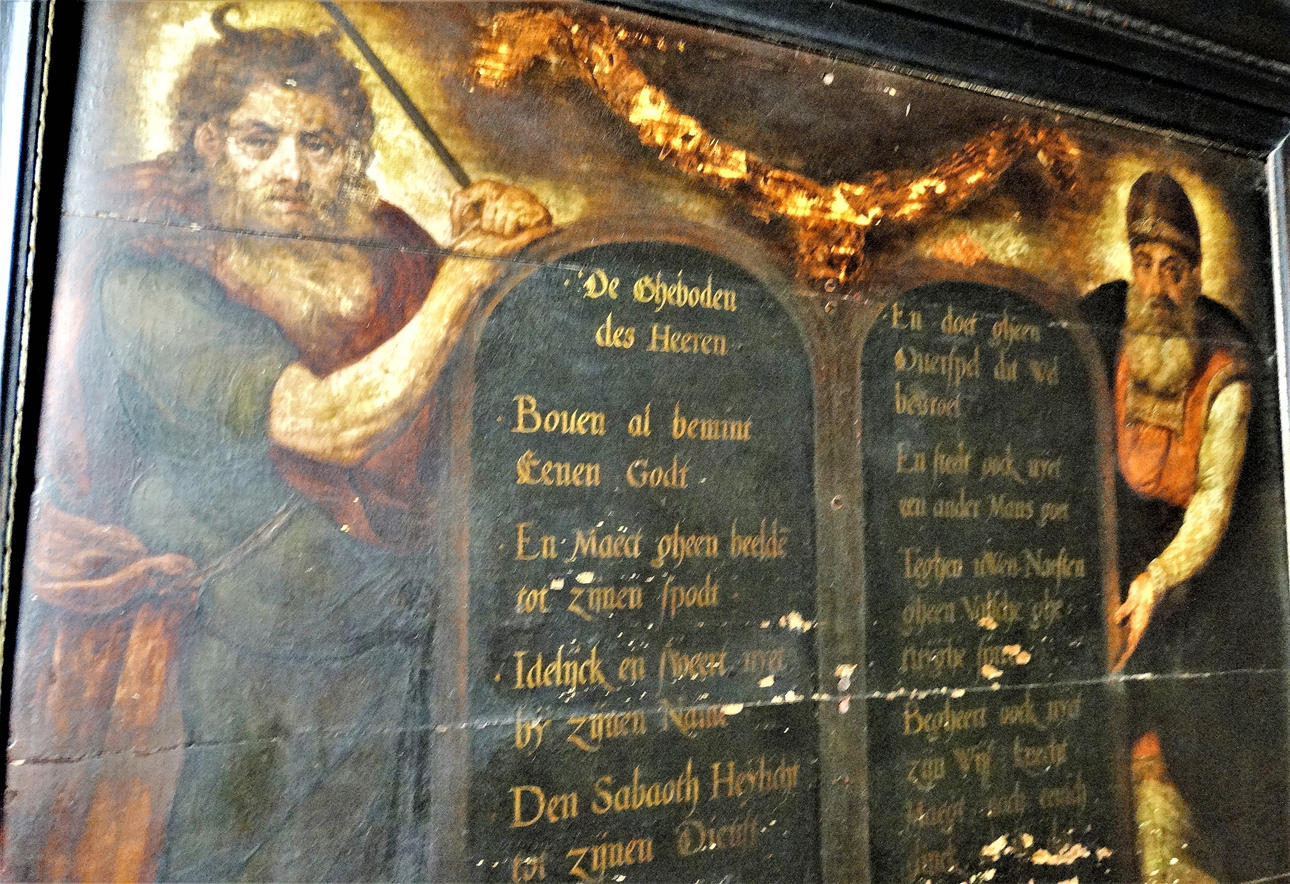 De Gheboden
des Heeren
Bouen al bemint
Eenen Godt
En Maect gheen beeldē
tot zijnen spodt
Idelijck en sweert nyet
by zijnen Name
Den Sabaoth Heylicht
tot zijnen Dienst
En doet gheen
Ouerspel dit wel
bevroet
En steelt oock nyet
een ander Mans goet
Teghen uwen Naesten
gheen Valsche ghe
Begheert oock nyet
zijn Wijf knecht
Maeght noch